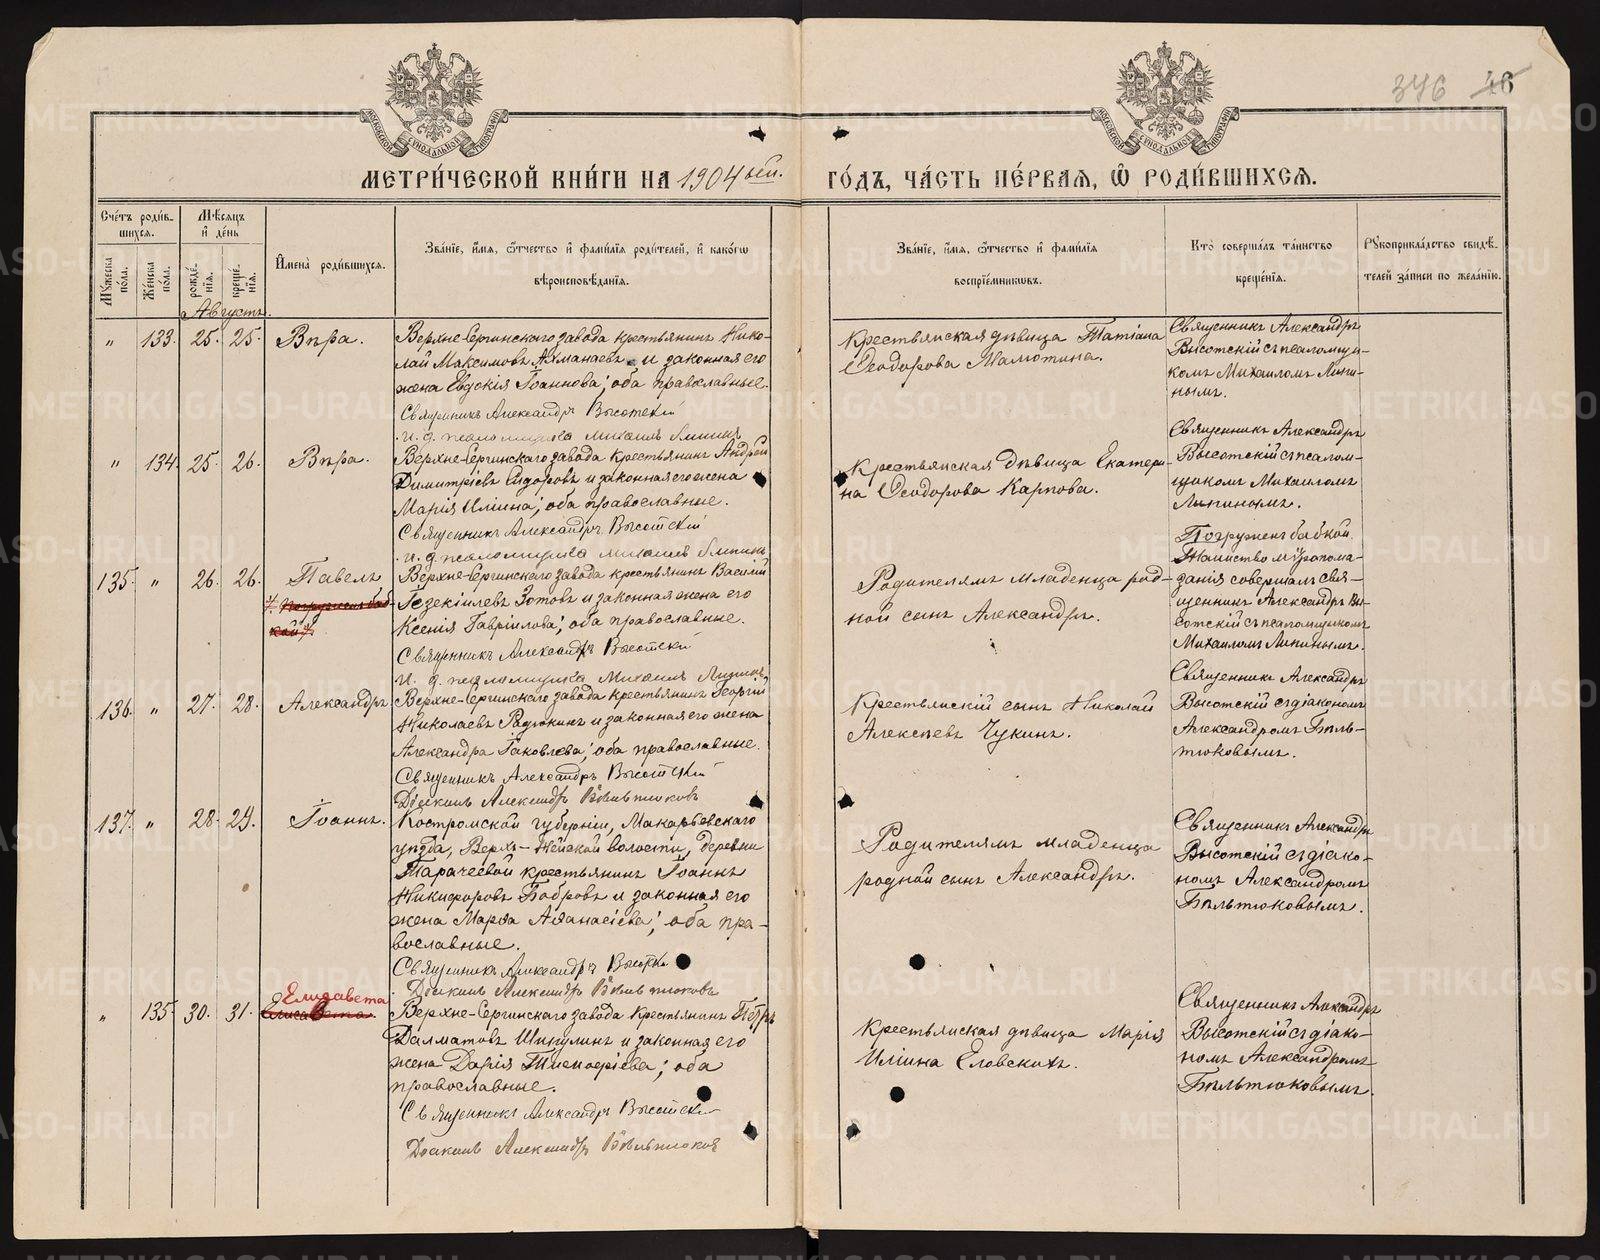 346 46
МОСКОВСКОЙ СУНОДАЛЬНОЙ ТИПОГРАФИИ
МОСКОВСКОЙ СУНОДАЛЬНОЙ ТИПОГРАФИИ
МЕТРИ́ЧЕСКОЙ КНИ́ГИ НА 1904ый. ГО́ДЪ, ЧА́СТЬ ПЕ́РВАѦ, Ѽ РОДИ́ВШИХСѦ.
Сче́тъ роди́в-
шихся.
Мѣ́сяцъ
и҆ де́нь
Му́жеска
по́ла.
Же́нска
по́ла.
рожде́-
нїя.
креще́-
нїя.
И҆мена̀ роди́вшихся.
Зва́нїе, и҆́мя, ѻ҆́тчество и҆ фами́лїя роди́телей, и҆ како́гѡ
вѣроисповѣ́данїя.
Зва́нїе, и҆́мя, ѻ҆́тчество и҆ фами́лїя
воспрїе́мникѡвъ.
Кто̀ соверша́лъ та́инство
креще́нїя.
Рꙋкоприкла́дство свидѣ́-
телей за́писи по жела́нїю.
Августъ.
„ 133. 25. 25. Вѣра.
Верхне-Сергинскаго завода крестьянинъ Нико-
лай Максимовъ Ахманаевъ и законная его
жена Евдокія Іоаннова; оба православные.
Священникъ Александръ Высотскій
и. д. псаломщика Михаилъ Липинъ
Крестьянская дѣвица Татіана
Ѳеодорова Малютина.
Священникъ Александръ
Высотскій съ псаломщи-
комъ Михаиломъ Липи-
нымъ.
„ 134. 25. 26. Вѣра.
Верхне-Сергинскаго завода крестьянинъ Андрей
Димитріевъ Сидоровъ и законная его жена
Марія Иліина; оба православные.
Священникъ Александръ Высотскій
и. д. псаломщика Михаилъ Липинъ
Крестьянская дѣвица Екатери-
на Ѳеодорова Карпова.
Священникъ Александръ
Высотскій съ псалом-
щикомъ Михаиломъ
Липинымъ.
135. „ 26. 26. Павелъ
Погруженъ баб-
кой
Верхне-Сергинскаго завода крестьянинъ Василій
Іезекіилевъ Зотовъ и законная жена его
Ксенія Гавріилова; оба православные.
Священникъ Александръ Высотскій
и. д. псаломщика Михаилъ Липинъ
Родителямъ младенца род-
ной сынъ Александръ.
Погруженъ бабкой.
Таинство мѵропома-
занія совершалъ свя-
щенникъ Александръ Вы-
сотскій съ псаломщикомъ
Михаиломъ Липинымъ.
136. „ 27. 28. Александръ
Верхне-Сергинскаго завода крестьянинъ Георгій
Николаевъ Радюкинъ и законная его жена
Александра Іаковлева; оба православные.
Священникъ Александръ Высотскій
Діаконъ Александръ Бѣльтюковъ
Крестьянскій сынъ Николай
Алексѣевъ Чукинъ.
Священникъ Александръ
Высотскій съ діакономъ
Александромъ Бѣль-
тюковымъ.
137. „ 28. 29. Іоаннъ.
Костромской губерніи, Макарьевскаго
уѣзда, Верхъ-Нейской волости, деревни
Тарачевой крестьянинъ Іоаннъ
Никифоровъ Бобровъ и законная его
жена Марѳа Аѳанасіева; оба пра-
вославные.
Священникъ Александръ Высотскій
Діаконъ Александръ Бѣльтюковъ
Родителямъ младенца
родной сынъ Александръ.
Священникъ Александръ
Высотскій съ діако-
номъ Александромъ
Бѣльтюковымъ.
Елизавета
„ 135. 30. 31. Елисавета.
Верхне-Сергинскаго завода крестьянинъ Петръ
Далматовъ Шипулинъ и законная его
жена Дарія Тимоѳеіева; оба
православные.
Священникъ Александръ Высотскій
Діаконъ Александръ Бѣльтюковъ
Крестьянская дѣвица Марія
Иліина Еловскихъ.
Священникъ Александръ
Высотскій съ діако-
номъ Александромъ
Бѣльтюковымъ.
METRIKI.GASO-URAL.RU